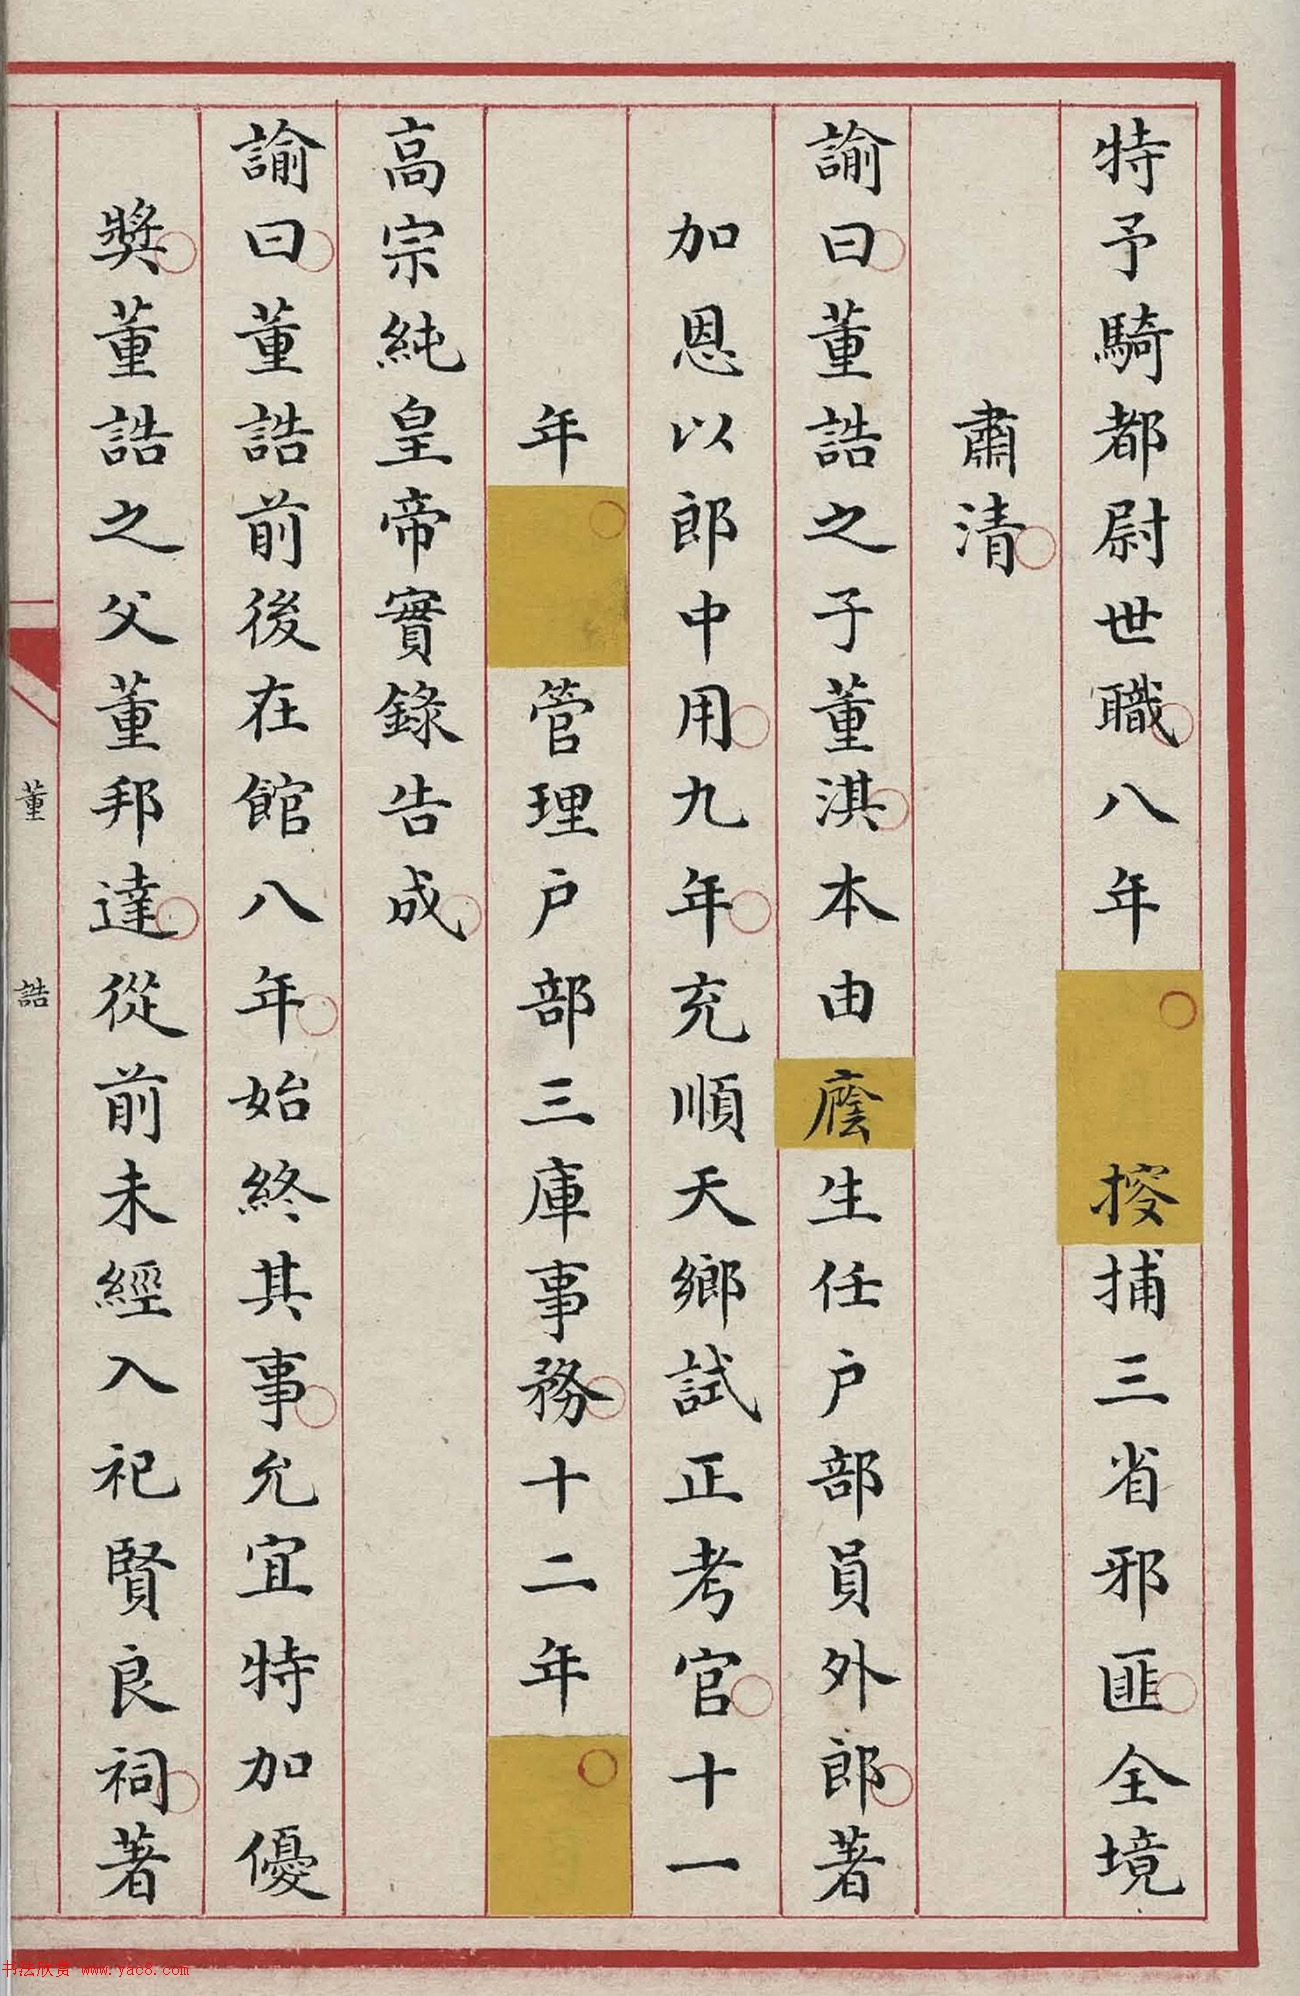 特予騎都尉世職八年搜捕三省邪匪全境
肅清
諭曰董誥之子董淇本由廕生任户部員外郎著
加恩以郎中用九年充順天鄉試正考官十一
年管理户部三庫事務十二年
高宗純皇帝實錄告成
諭曰董誥前後在館八年始終其事允宜特加優
獎董誥之父董邦達從前未經入祀賢良祠著
董誥
书法欣赏 www.yac8.com